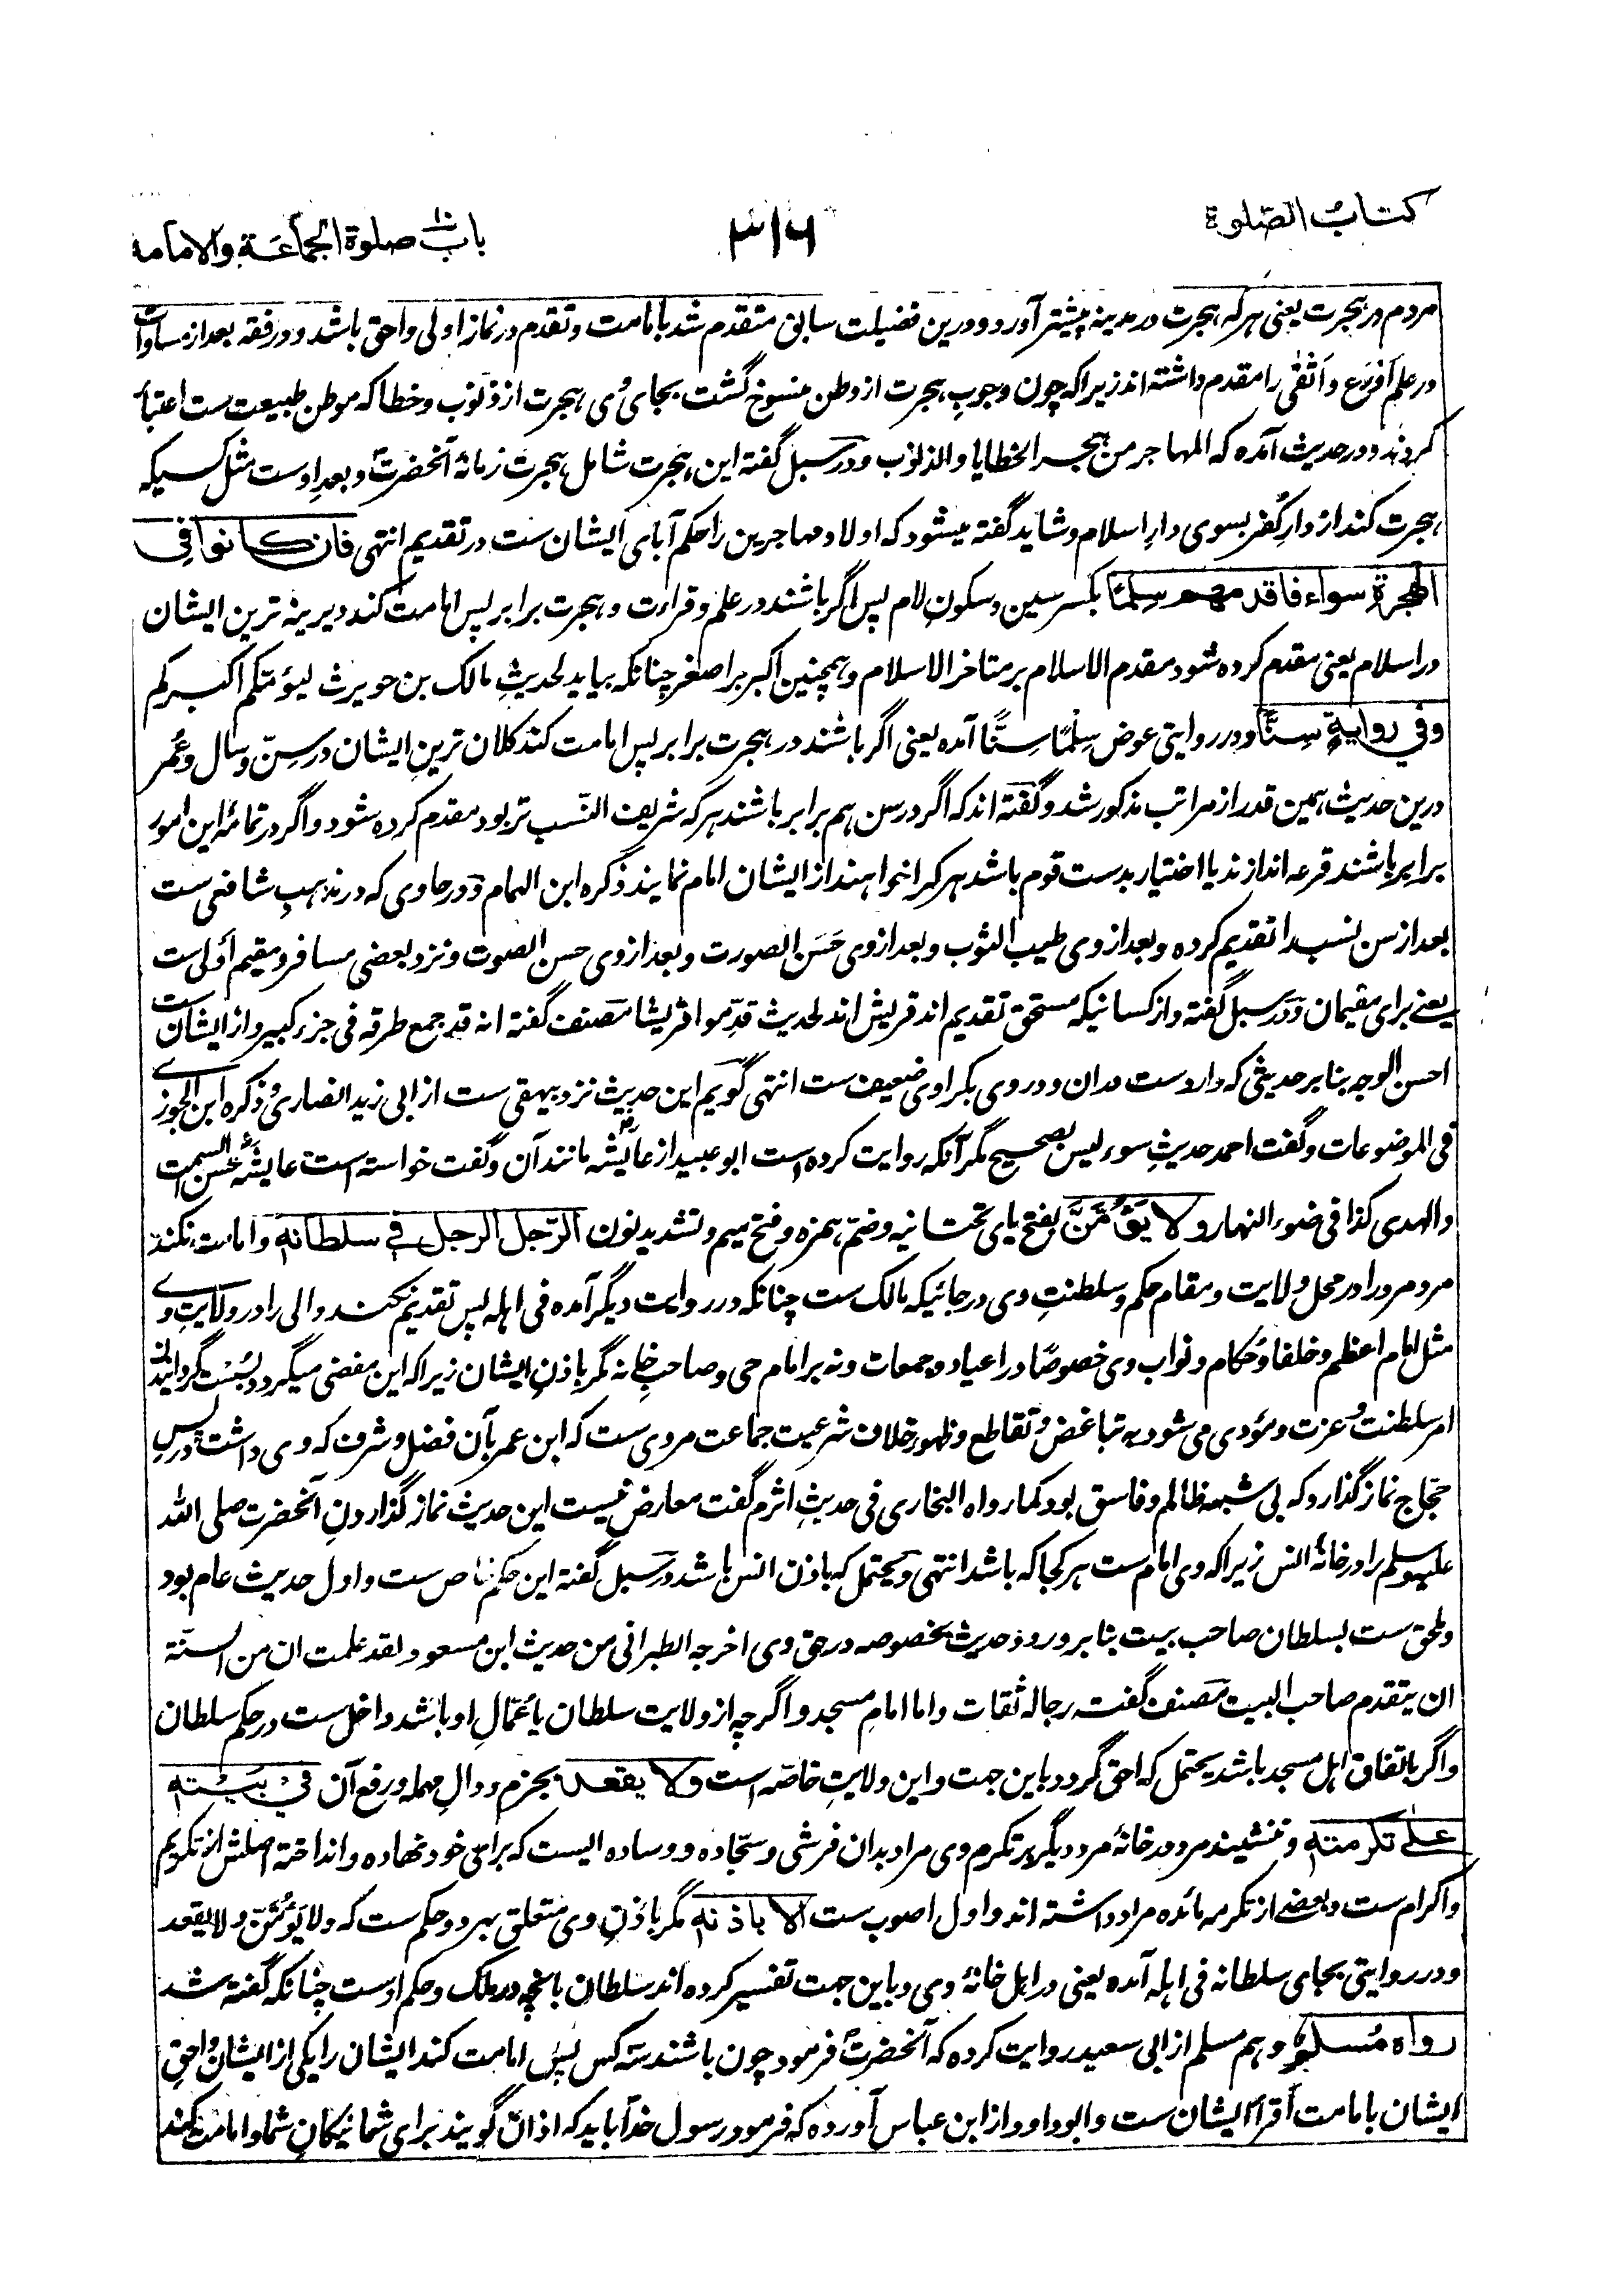 کتاب الصّلوة
۳۱۶
باب صلوة الجماعة والامامة
مردم در هجرت یعنی هرکه هجرت در مدینه پیشتر آورد و درین فضیلت سابق متقدم شد بامامت و تقدم در نماز اولی واحق باشد و در فقه بعد از مساوات
در علم اَورَع و اَتقٰی را مقدم داشته اند زیرا که چون وجوبِ هجرت از وطن منسوخ گشت بجای وُی هجرت از ذنوب و خطا که موطن طبیعت ست اعتبار
کردند و در حدیث آمده که المهاجر من هجر الخطایا و الذنوب و در سبل گفته این هجرت شامل هجرت زمانهٔ آنحضرتؐ و بعدِ اوست مثل کسیکه
هجرت کند از دارِ کُفر بسوی دارِ اسلام و شاید گفته میشود که اولاد مهاجرین را حکم آبای ایشان ست در تقدیم انتهی فان كانوا في
الهجرة سواء فاقدمهم سِلمًا بکسر سین و سکونِ لام پس اگر باشند در علم و قراءت و هجرت برابر پس امامت کند دیرینه ترین ایشان
در اسلام یعنی مقدم کرده شود مقدم الاسلام بر متاخر الاسلام و همچنین اکبر بر اصغر چنانکه بیاید لحدیثِ مالک بن حویرث لیؤمکم اکبرکم
وفي روايةٍ سِنًّا و در روایتی عوض سِلمًا سِنًّا آمده یعنی اگر باشند در هجرت برابر پس امامت کند کلان ترینِ ایشان در سِنّ و سال و عُمر
درین حدیث همین قدر از مراتب مذکور شد و گفته اند که اگر در سن هم برابر باشند هرکه شریف النّسب تر بود مقدم کرده شود و اگر در تمامهٔ این امور
برابر باشند قرعه اندازند یا اختیار بدست قوم باشد هر کرا خواهند از ایشان امام نمایند ذکره ابن الهمام و در حاوی که در مذهبِ شافعی ست
بعد از سن نسب را تقدیم کرده و بعد از وی طیب الثوب و بعد از وی حَسَن الصورت و بعد از وی حسن الصوت و نزد بعضی مسافر و مقیم اَولی ست
یعنے برای مقیمان و در سبل گفته و از کسانیکه مستحق تقدیم اند قریش اند لحدیث قدِّموا قریشا مصنف گفته انه قد جمع طرقه فی جزء کبیر و از ایشان ست
احسن الوجه بنابر حدیثی که وارد ست دران و در وی یک راوی ضعیف ست انتهی گویم این حدیث نزد بیهقی ست از ابی زید انصاری و ذکره ابن الجوزے
فی الموضوعات و گفت احمد حدیثِ سوء لیس بصحیح مگر آنکه روایت کرده است ابو عبید از عایشه مانند آن و گفت خواسته است عایشه حسن السمت
والهدی کذا فی ضوء النهار ولا يَؤُمَّنَّ بفتح یای تحتانیه و ضمّ همزه و فتح میم و تشدید نون الرّجل الرجل في سلطانه و امامت نکند
مرد مرد را در محل ولایت و مقام حکم و سلطنتِ وی در جائیکه مالک ست چنانکه در روایت دیگر آمده فی اهله پس تقدیم نکند والی را در ولایتِ وے
مثل امام اعظم و خلفا و حکام و نواب وی خصوصًا در اعیاد و جمعات و نه بر امام حی و صاحبِ خانه مگر باذنِ ایشان زیرا که این مفضی میگردد
امر سلطنت و عزت و مؤدی می شود به تباغض و تقاطع و ظهور خلاف شرعیت جماعت مروی ست که ابن عمر بآن فضل و شرف که وی داشت در پس
حجاج نماز گذارد که بی شبهه ظالم و فاسق بود کما رواه البخاری فی حدیثِ اثرم گفت معارض نیست این حدیث نماز گذاردنِ آنحضرت صلی الله
علیه وسلم را در خانهٔ انس زیرا که وی امام ست هر کجا که باشد انتهی و یحتمل که باذن انس باشد و در سبل گفته این حکم خاص ست و اول حدیث عام بود
و ملحق ست بسلطان صاحب بیت بنا بر ورود حدیث بخصوصه در حق وی اخرجه الطبرانی من حدیث ابن مسعود لقد علمت ان من السنّة
ان یتقدم صاحب البیت مصنف گفت رجاله ثقات و اما امامِ مسجد و اگرچه از ولایت سلطان یا عُمّالِ او باشد داخل ست در حکم سلطان
و اگر باتفاق اهل مسجد باشد یحتمل که احق گردد باین جهت و این ولایتِ خاصّه است ولا يقعد بجزم و دالِ مهمله و رفع آن في بَيْتهِ
على تكرمته و ننشیند مرد در خانهٔ مرد دیگر بر تکرم وی مراد بدان فرشی و سجّاده و وساده ایست که برای خود نهاده و انداخته اصلش از تکریم
واکرام ست و بعضے از تکرمه مائده مراد داشته اند و اول اصوب ست الا باذنه مگر باذنِ وی متعلق بهر دو حکم ست که ولا یؤمنّ ولا یقعد
و در روایتی بجای سلطانه فی اهله آمده یعنی در اهل خانهٔ وی و باین جهت تفسیر کرده اند سلطان بانچه در ملک و حکم اوست چنانکه گفته شد
رواه مُسلم و هم مسلم از ابی سعید روایت کرده که آنحضرتؐ فرمود چون باشند سه کس پس امامت کند ایشان را یکی از ایشان و احقِ
ایشان بامامت اَقرأ ایشان ست و ابو داود از ابن عباس آورده که فرمود رسول خدا باید که اذان گویند برای شما نیکانِ شما و امامت کند